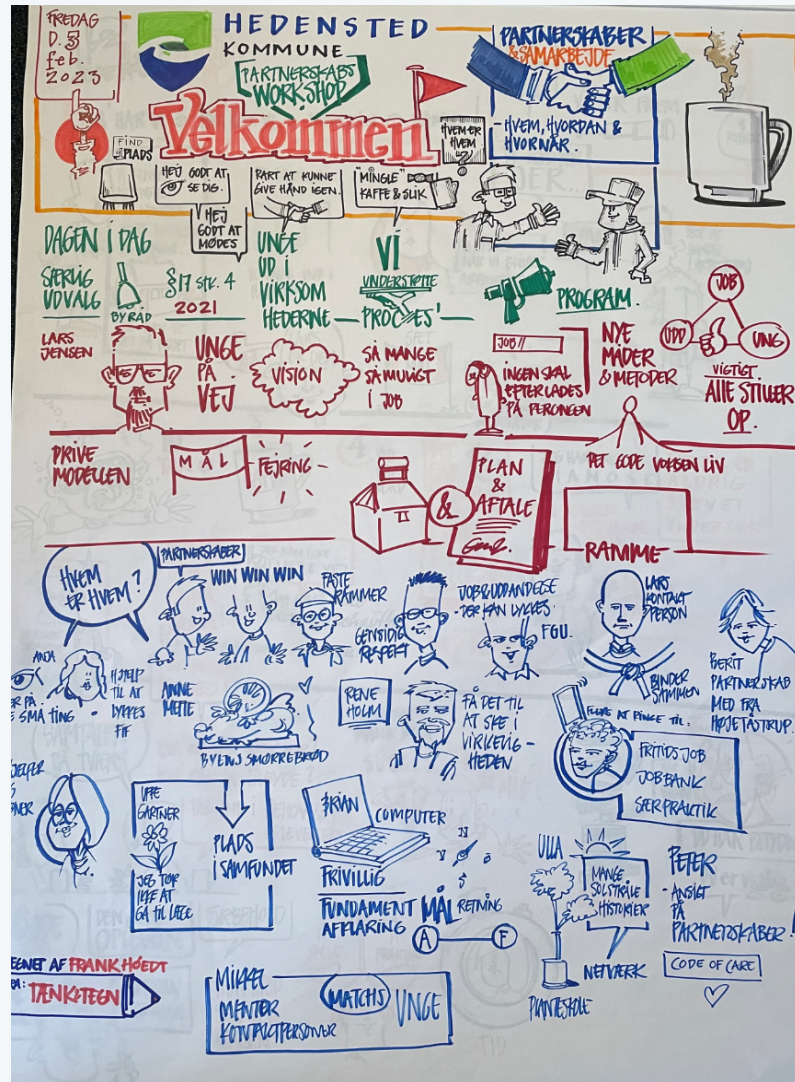 FREDAG
D. 3
feb.
2023
HEDENSTED
KOMMUNE
PARTNERSKABS
WORKSHOP
Velkommen
PARTNERSKABER
& SAMARBEJDE
- HVEM, HVORDAN &
HVORNÅR.
FIND
PLADS
HEJ GODT AT
SE DIG.
HEJ
GODT AT
MØDES
RART AT KUNNE
GIVE HÅND IGEN.
"MINGLE"
KAFFE & SLIK
HVEM ER
HVEM
?
DAGEN I DAG
SÆRLIG
UDVALG
BYRÅD
§17 STK. 4
2021
UNGE
UD I
VIRKSOM
HEDERNE
VI
UNDERSTØTTE
PROCES'
PROGRAM.
LARS
JENSEN
UNGE
PÅ
VEJ
VISION
SÅ MANGE
SÅ MULIGT
I JOB
JOB //
INGEN SKAL
EFTERLADES
PÅ PERONGEN
NYE
MÅDER
& METODER
JOB
UDD
UNG
VIGTIGT
ALLE STILLER
OP.
DRIVE
MODELLEN
MÅL
FEJRING
&
PLAN
&
AFTALE
DET GODE VOKSEN LIV
RAMME
HVEM
ER HVEM?
PARTNERSKABER
WIN WIN WIN
FASTE
RAMMER
GENSIDIG
RESPEKT
JOB & UDDANDELSE
- DER KAN LYKKES -
FGU.
LARS
KONTAKT
PERSON
BINDER
SAMMEN
BERIT
PARTNERSKAB
MED FRA
HØJETÅSTRUP.
ANJA
ER PÅ
SMÅ TING -
HJÆLP
TIL AT
LYKKES
FIF
ANNE
METTE
BYENS SMØRREBRØD
RENE
HOLM
FÅ DET TIL
AT SKE I
VIRKELIG -
HEDEN
AT PINGE TIL:
FRITIDS JOB
JOBBANK
SÆR PRAKTIK
UFFE
GARTNER
JEG TØR
IKKE AT
GÅ TIL LÆGE
PLADS
I SAMFUNDET
COMPUTER
FRIVILLIG
FUNDAMENT
AFKLARING
MÅL
RETNING
A
F
ULLA
MANGE
SOLSTRÅLE
HISTORIER
NETVÆRK
PLANTESKOLE
PETER
- ANSIGT
PÅ
PARTNERSKABER!
CODE OF CARE
EGNET AF FRANK HØEDT
TÆNK&TEGN
MIKKEL
MENTER
KONTAKTPERSONER
MATCHS
UNGE